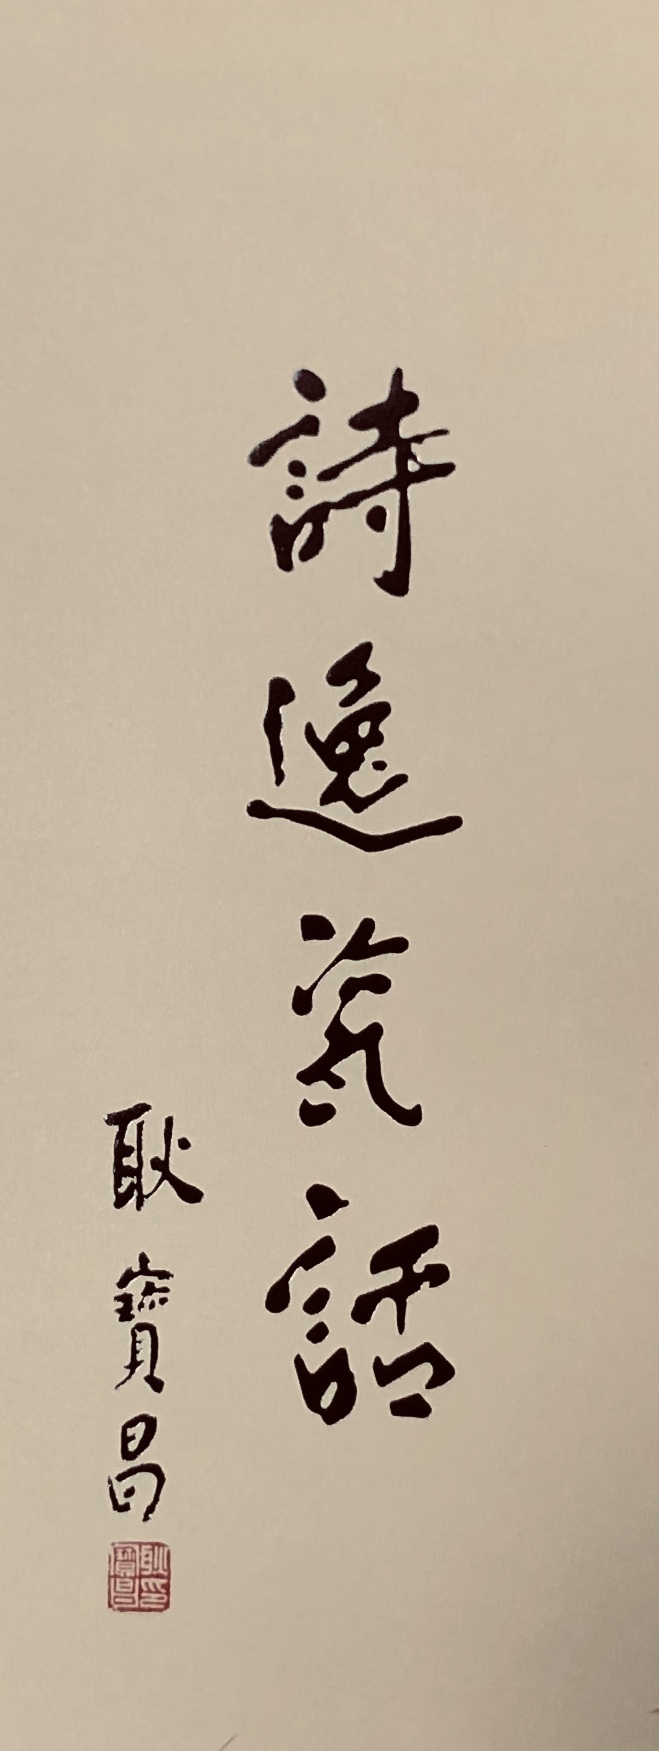 詩逸瓷話
耿寶昌
耿寶昌印